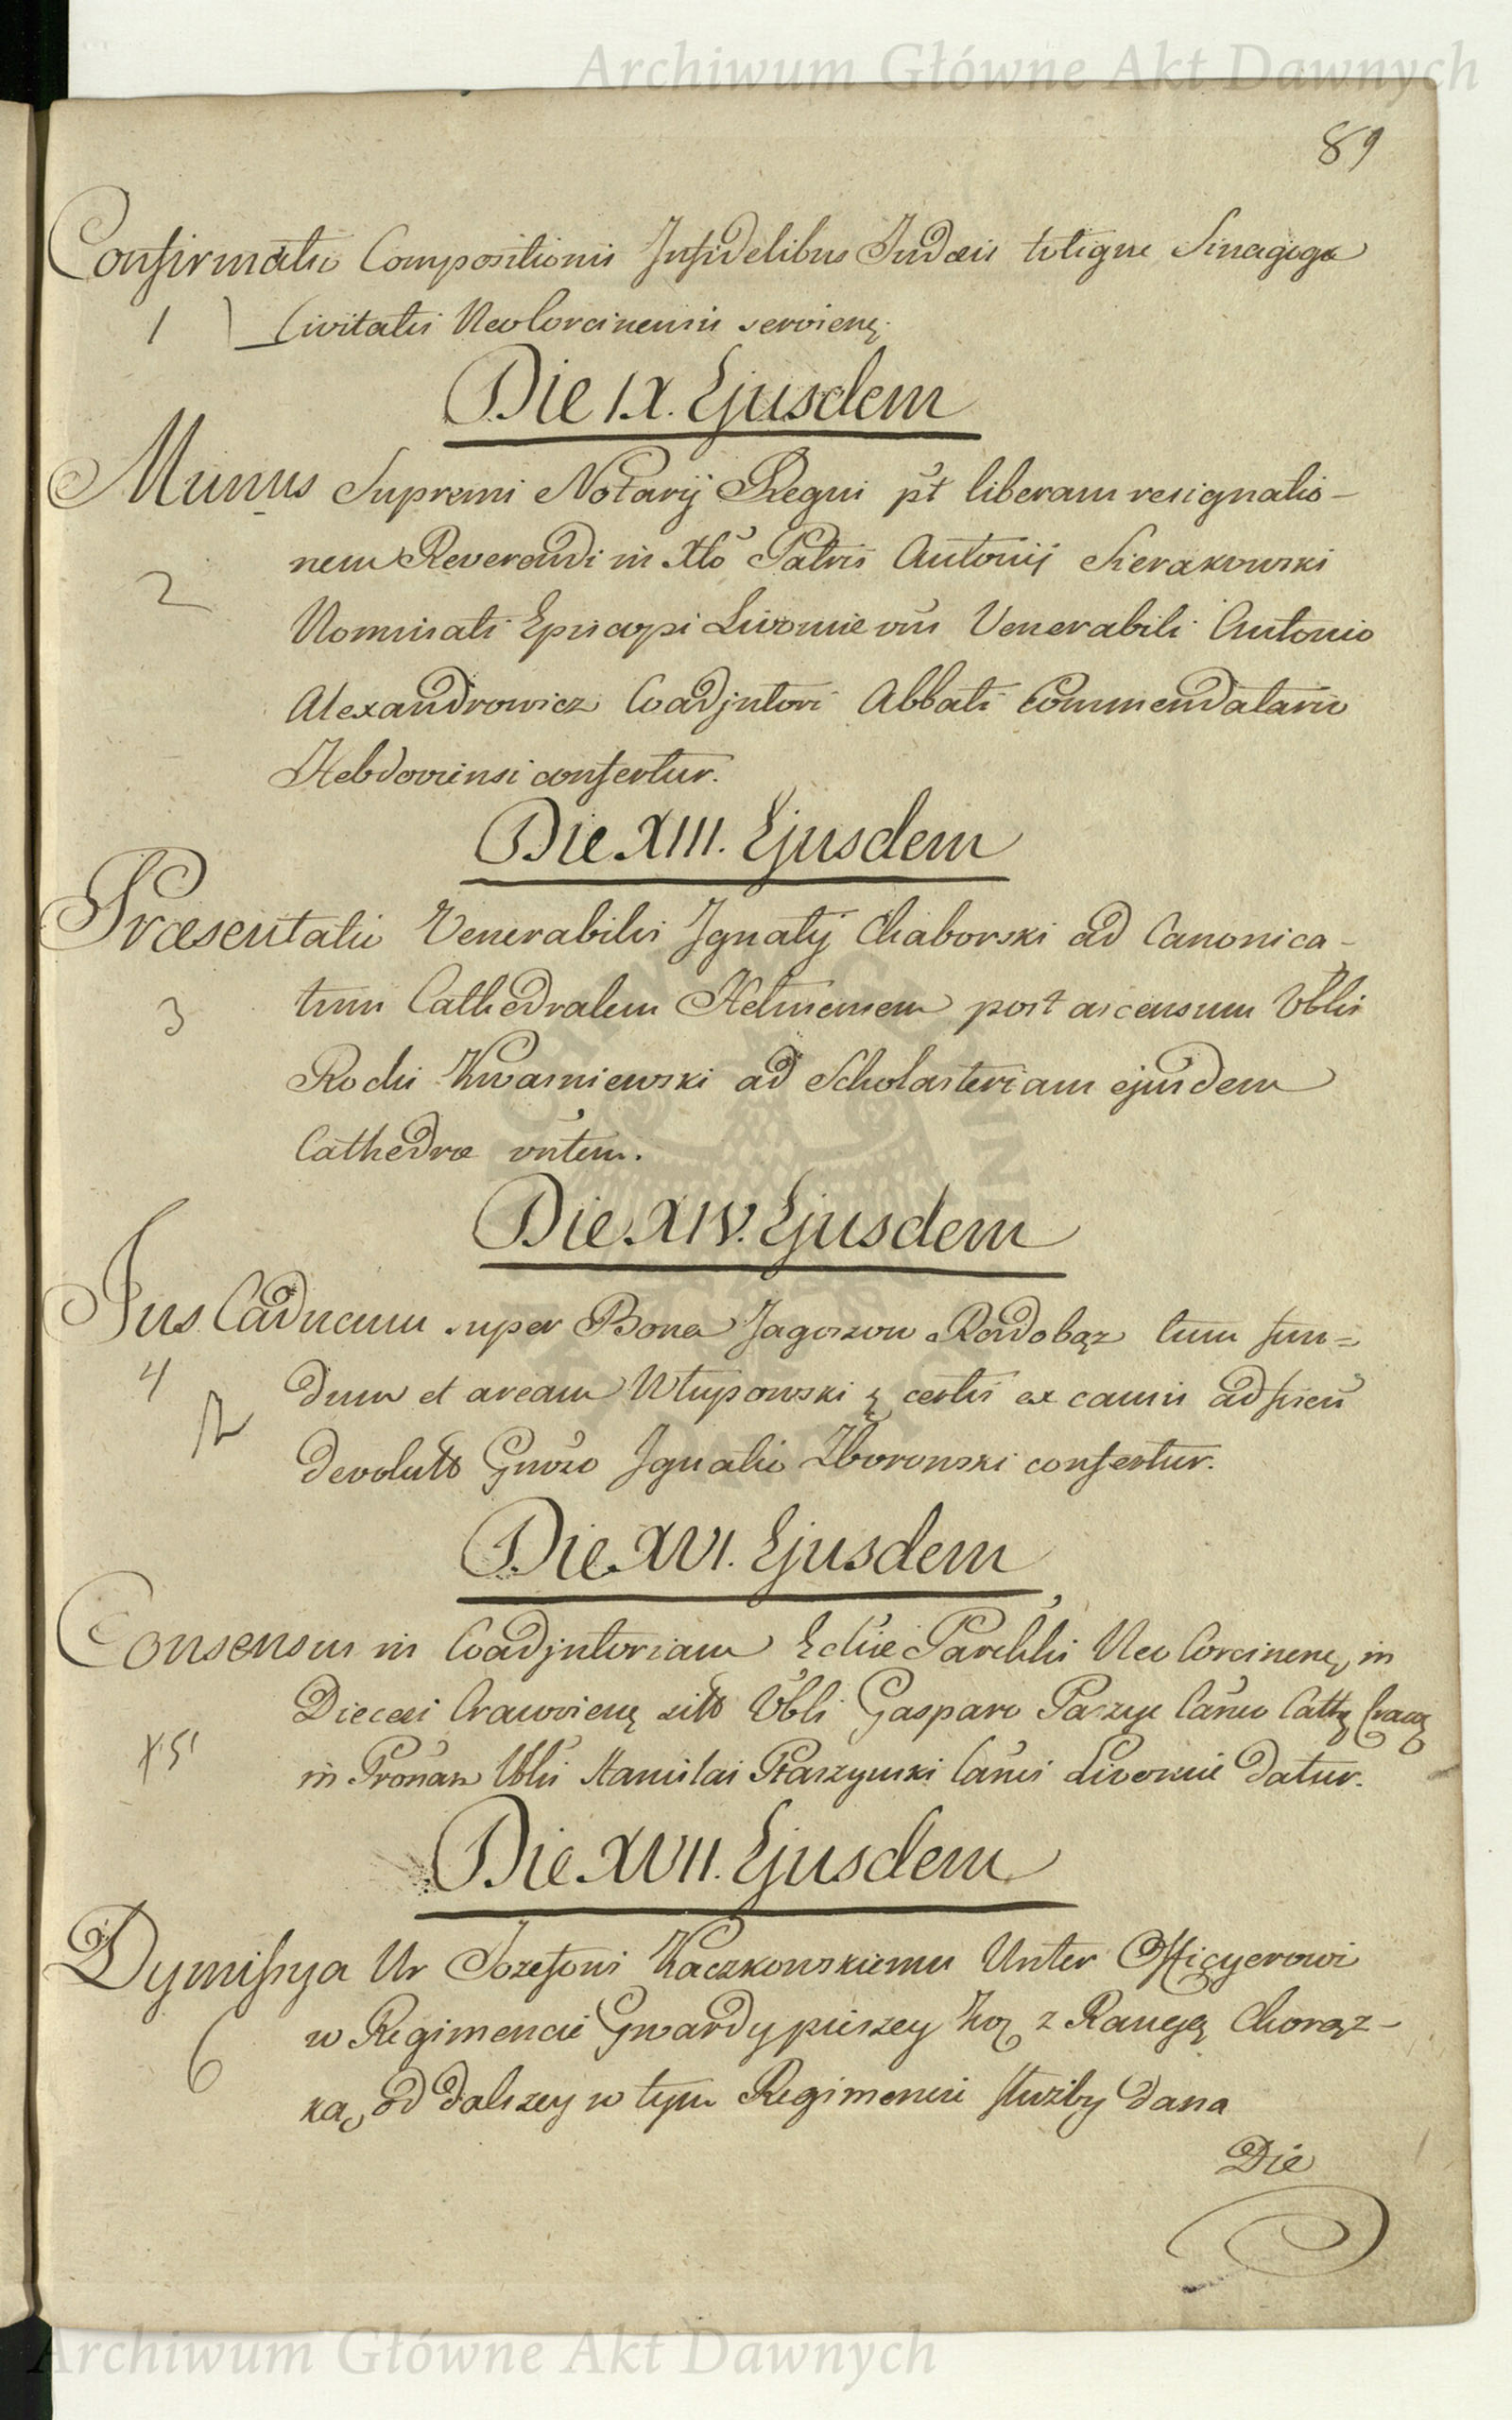 Archiwum Główne Akt Dawnych
89
Confirmatio Compositionis Infidelibus Judæis totique Sinagogæ
1 Civitatis Neolorcinensis servienę.
Die IX. Ejusdem
Munus Supremi Notarij Regni pt liberam resignatio-
nem Reverendi in Xto Patris Antonij Sierakowski
2
Nominati Episcopi Livoniæ Venerabili Antonio
Alexandrowicz Coadjutori Abbati Commendatario
Hebdoviensi confertur.
Die XIII. Ejusdem
Præsentatio Venerabilis Ignatij Chaborski ad Canonica-
3 tum Cathedralem Helmensem post ascensum Vblis
Rochi Kwasniewski ad Scholasteriam ejusdem
Cathedræ vntem.
Die XIV. Ejusdem
Jus Caducum super Bona Jagoszow Radobąz tum fun=
4 dum et aream Wtupowski ę certis ex causis ad fiscu
devolutt Gnoso Ignatio Zborowski confertur.
Die XVI. Ejusdem
Consensus in Coadjutoriam Ecliæ Parchlis Neo Corcinenę in
Diecesi Cracovienę sitt Vbli Gasparo Paszyc Canco Cattę Cracę
x 5
in Vblis Stanislai Ptaszynski Canci Livoniæ datur.
Die XVII. Ejusdem
Dymissya Ur Jozefowi Kaczkowskiemu Unter Officyerowi
6 w Regimencie Gwardy pieszey Koę z Rangą Chorąz-
ka, od dalszey w tym Regimencie służby dana
Die
Archiwum Główne Akt Dawnych